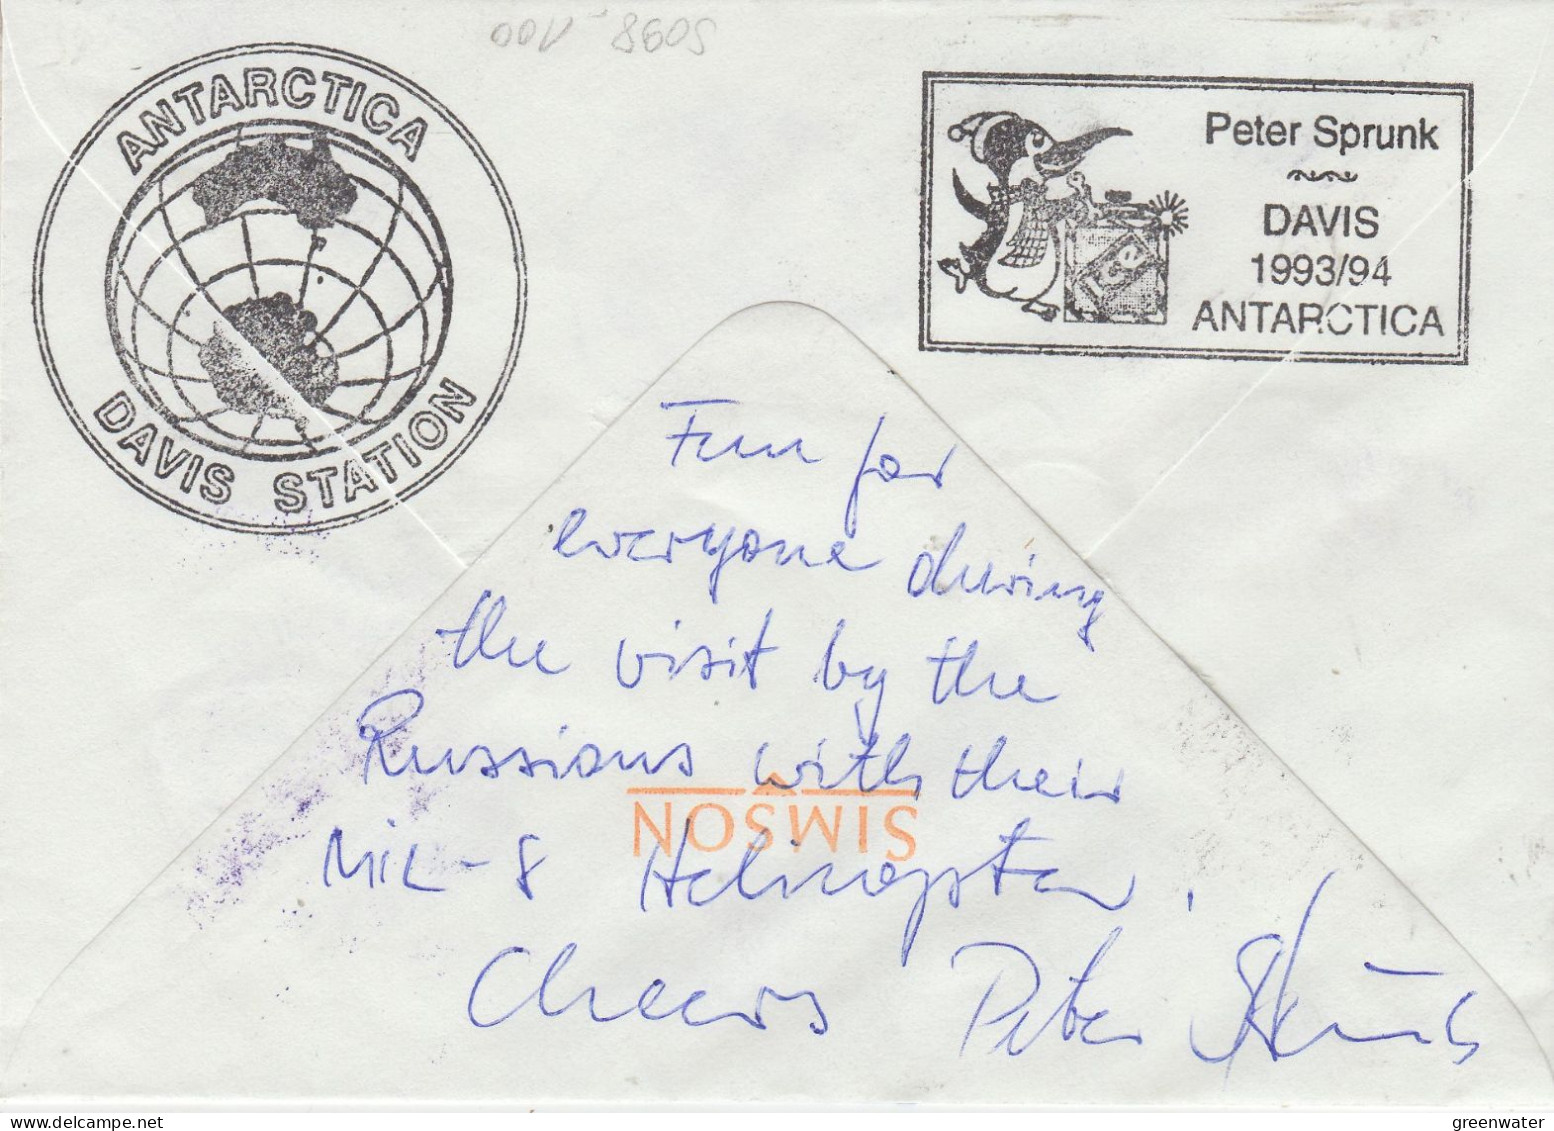 ANTARCTICA
DAVIS STATION
Peter Sprunk
DAVIS
1993/94
ANTARCTICA
Fun for
everyone during
the visit by the
Russians with their
MIL-8 Helicopter.
Cheers Peter Sprunk
SIMSON
5098-100
greenwater